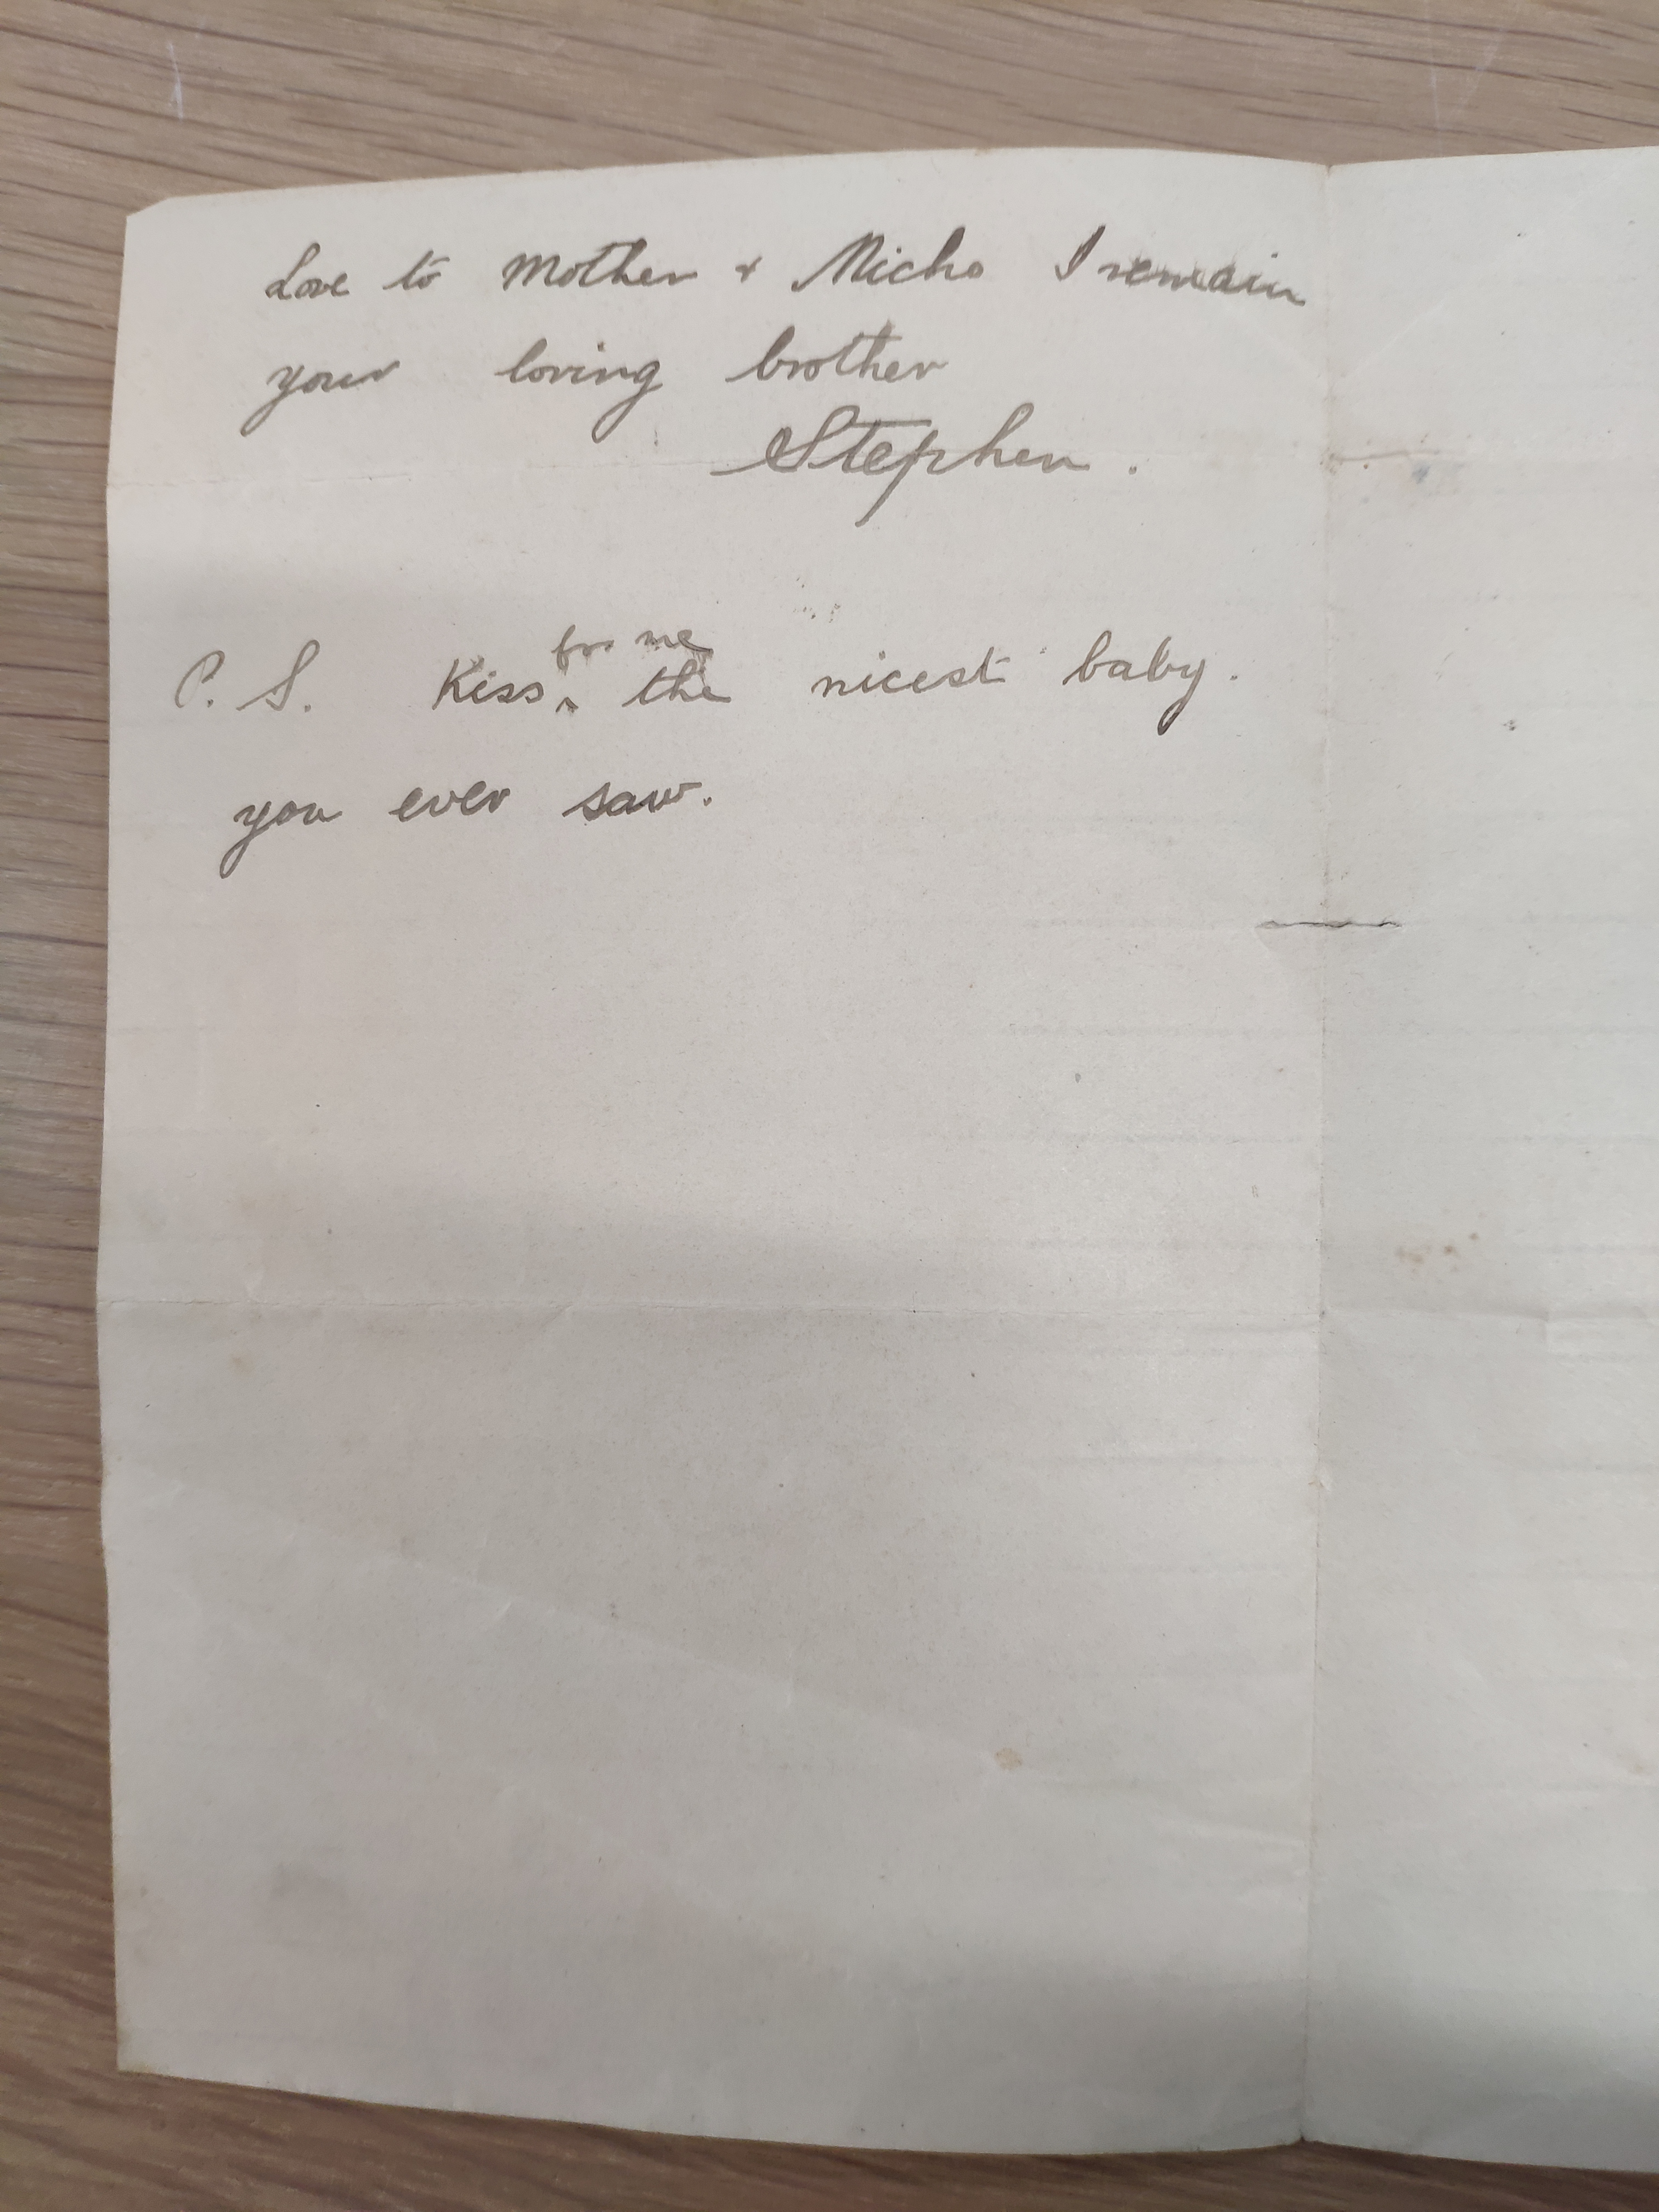 Love to Mother & Micho I remain
your loving brother
Stephen.
P. S. Kiss ^for me the nicest baby.
you ever saw.